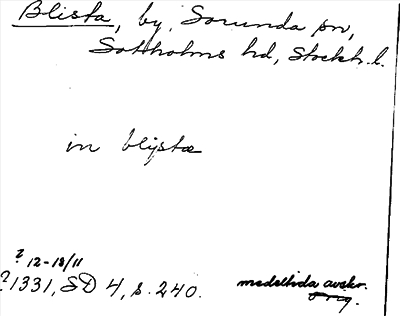 Blista, by, Sorunda sn,
Sotholms hd, Stockh. l.
in blijstæ
? 12-18/11
?1331, SD 4, s. 240.
medeltida avskr.
orig.